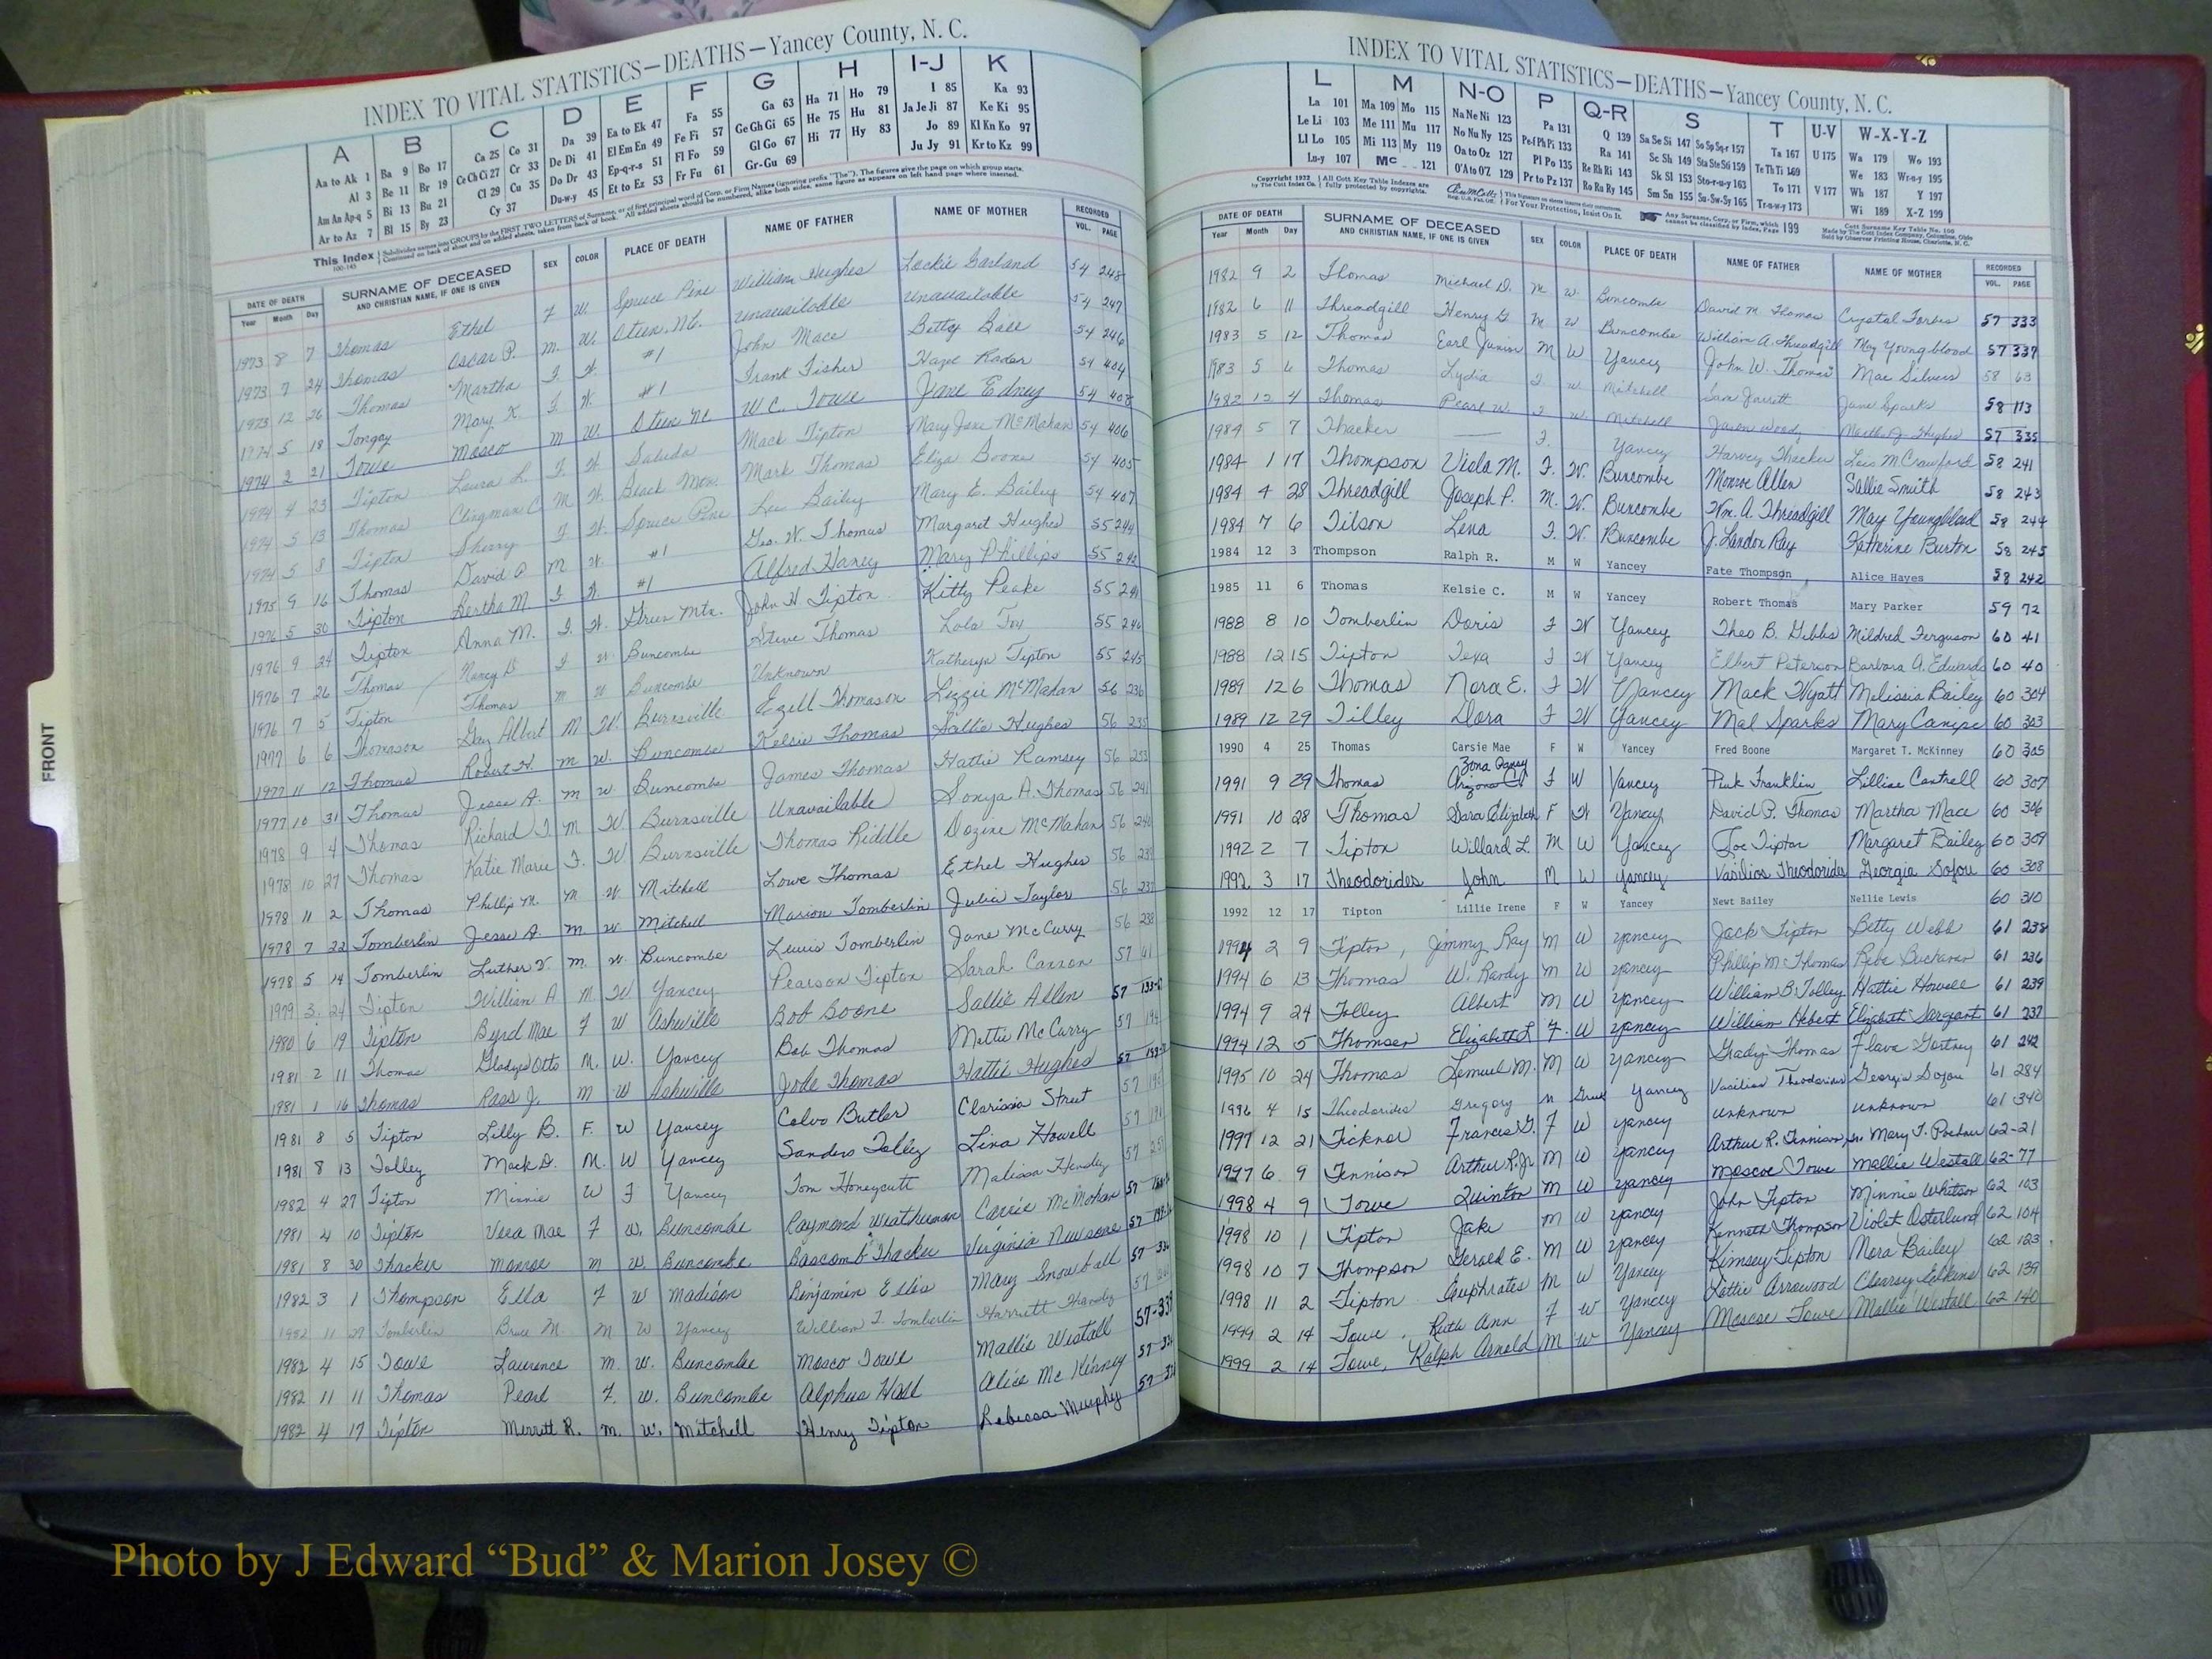 INDEX TO VITAL STATISTICS—DEATHS—Yancey County, N. C.
A B C D E F G H I-J K
Aa to Ak 1 Ba 9 Bo 17 Ca 25 Co 31 Da 39 Ea to Ek 47 Fa 55 Ga 63 Ha 71 Ho 79 I 85 Ka 93
Al 3 Be 11 Br 19 Ce Ch Ci 27 Cr 33 De Di 41 El Em En 49 Fe Fi 57 Ge Gh Gi 65 He 75 Hu 81 Ja Je Ji 87 Ke Ki 95
Am An Ap-q 5 Bi 13 Bu 21 Cl 29 Cu 35 Do Dr 43 Ep-q-r-s 51 Fl Fo 59 Gl Go 67 Hi 77 Hy 83 Jo 89 Kl Kn Ko 97
Ar to Az 7 Bl 15 By 23 Cy 37 Du-w-y 45 Et to Ez 53 Fr Fu 61 Gr-Gu 69 Ju Jy 91 Kr to Kz 99
This Index
DATE OF DEATH SURNAME OF DECEASED SEX COLOR PLACE OF DEATH NAME OF FATHER NAME OF MOTHER RECORDED
Year Month Day AND CHRISTIAN NAME, IF ONE IS GIVEN VOL. PAGE
1973 8 7 Thomas Ethel F W. Spruce Pine William Hughes Lockie Garland 54 248
1973 7 24 Thomas Oscar P. M. W. Oteen, N.C. Unavailable Unavailable 54 247
1973 12 26 Thomas Martha F. W. #1 John Mace Betty Ball 54 246
1974 5 18 Tongay Mary K. F. W. #1 Frank Fisher Hazel Rader 54 404
1974 2 21 Towe Mosco M W. Oteen NC W. C. Towe Jane Edney 54 408
1974 4 23 Tipton Laura L. F. W. Saluda Mack Tipton Mary Jane McMahan 54 406
1974 5 13 Thomas Clingman C. M. W. Black Mtn. Mark Thomas Eliza Boone 54 405
1974 5 8 Tipton Sherry F W. Spruce Pine Lee Bailey Mary E. Bailey 54 407
1975 9 16 Thomas David A. M W. #1 Geo. W. Thomas Margaret Hughes 55 244
1976 5 30 Tipton Bertha M. F. W. #1 Alfred Haney Mary Phillips 55 242
1976 9 24 Tipton Anna M. F. W. Green Mtn. John H Tipton Kitty Peake 55 241
1976 7 26 Thomas Nancy D F W Buncombe Steve Thomas Lola 55 246
1976 7 5 Tipton Thomas M W Buncombe Unknown Katheryn Tipton 55 245
1977 6 6 Thomason Guy Albert M W. Burnsville Ezell Thomason Lizzie McMahan 56 236
1977 11 12 Thomas Robert H. M W. Buncombe Kelsie Thomas Sallie Hughes 56 235
1977 10 31 Thomas Jesse A. M W Buncombe James Thomas Hattie Ramsey 56 233
1978 9 4 Thomas Richard J. M. W. Burnsville Unavailable Sonya A. Thomas 56 241
1978 10 27 Thomas Katie Marie F. W Burnsville Thomas Riddle Dozine McMahan 56 240
1978 11 2 Thomas Phillip M. M W Mitchell Lowe Thomas Ethel Hughes 56 239
1978 7 22 Tomberlin Jesse A. M. W Mitchell Marion Tomberlin Julia Taylor 56 237
1978 5 14 Tomberlin Luther V. M. W. Buncombe Lewis Tomberlin Jane McCurry 56 238
1979 3 24 Tipton William A M. W Yancey Pearson Tipton Sarah Cannon 57 41
1980 6 19 Tipton Byrd Mae F W Asheville Bob Boone Sallie Allen 57
1981 2 11 Thomas Gladys Otto M. W. Yancey Bob Thomas Mettie McCurry 57
1981 1 16 Thomas Rass J. M W Asheville Jode Thomas Hattie Hughes 57
1981 8 5 Tipton Lilly B. F. W Yancey Calvo Butler Clarissia Street 57
1981 8 13 Tolley Mack D. M. W Yancey Sanders Tolley Lina Howell 57
1982 4 27 Tipton Minnie W F Yancey Tom Honeycutt Malissa Hensley 57
1981 4 10 Tipton Vera Mae F W. Buncombe Raymond Weatherman Carrie McMahan 57
1981 8 30 Thacker Monroe M W. Buncombe Bascomb Thacker Virginia Newsome 57
1982 3 1 Thompson Ella F W Madison Benjamin Ellis Mary Snowball 57
1982 11 27 Tomberlin Bruce M. M W Yancey William T. Tomberlin Harriett Hensley 57
1982 4 15 Towe Laurence M. W. Buncombe Mosco Towe Mallie Westall 57-33
1982 11 11 Thomas Pearl F. W. Buncombe Alphus Hall Alice McKinney 57-33
1982 4 17 Tipton Merritt R. M. W. Mitchell Henry Tipton Rebecca Murphy 57-33
FRONT
INDEX TO VITAL STATISTICS—DEATHS—Yancey County, N. C.
L M N-O P Q-R S T U-V W-X-Y-Z
La 101 Ma 109 Mo 115 Na Ne Ni 123 Pa 131 Q 139 Sa Se Si 147 So Sp Sq-r 157 Ta 167 U 175 Wa 179 Wo 193
Le Li 103 Me 111 Mu 117 No Nu Ny 125 Pe-f Ph Pi 133 Ra 141 Sc Sh 149 Sta Ste Sti 159 Te Th Ti 169 We 183 Wr-u-y 195
Ll Lo 105 Mi 113 My 119 Oa to Oz 127 Pl Po 135 Re Rh Ri 143 Sk Sl 153 Sto-r-u-y 163 To 171 V 177 Wh 187 Y 197
Lu-y 107 Mc 121 O'A to O'Z 129 Pr to Pz 137 Ro Ru Ry 145 Sm Sn 155 Su-Sw-Sy 165 Tr-u-w-y 173 Wi 189 X-Z 199
DATE OF DEATH SURNAME OF DECEASED SEX COLOR PLACE OF DEATH NAME OF FATHER NAME OF MOTHER RECORDED
Year Month Day AND CHRISTIAN NAME, IF ONE IS GIVEN VOL. PAGE
1982 9 2 Thomas Michael D. M W. Buncombe David M. Thomas Crystal Forbes 57 333
1982 6 11 Threadgill Henry G M W Buncombe William A. Threadgill May Youngblood 57 337
1983 5 12 Thomas Earl Junior M W Yancey John W. Thomas Mae Silvers 58 63
1983 5 6 Thomas Lydia F. W. Mitchell Sam Jarrett Jane Sparks 58 113
1982 12 4 Thomas Pearl W. F W. Mitchell Jason Woody Hughes 57 335
1984 5 7 Thacker — F. Yancey Harvey Thacker Lois M Crawford 58 241
1984 1 17 Thompson Viola M. F. W. Buncombe Monroe Allen Sallie Smith 58 243
1984 4 28 Threadgill Joseph P. M. W. Buncombe Wm. A. Threadgill May Youngblood 58 244
1984 7 6 Tilson Lena F. W. Buncombe J. Landon Ray Katherine Burton 58 245
1984 12 3 Thompson Ralph R. M W Yancey Fate Thompson Alice Hayes 58 242
1985 11 6 Thomas Kelsie C. M W Yancey Robert Thomas Mary Parker 59 72
1988 8 10 Tomberlin Doris F W Yancey Theo B. Gibbs Mildred Ferguson 60 41
1988 12 15 Tipton Texa F W Yancey Elbert Peterson Barbara A. Edwards 60 40
1989 12 6 Thomas Nora E. F W Yancey Mack Wyatt Melissia Bailey 60 304
1989 12 29 Tilley Dora F W Yancey Mal Sparks Mary Canipe 60 303
1990 4 25 Thomas Carsie Mae F W Yancey Fred Boone Margaret T. McKinney 60 305
1991 9 29 Thomas Zona F W Yancey Pink Franklin Lillian Cantrell 60 307
1991 10 28 Thomas Sara Elizabeth F W Yancey David P. Thomas Martha Mace 60 306
1992 2 7 Tipton Willard L. M W Yancey Joe Tipton Margaret Bailey 60 309
1992 3 17 Theodorides John M W Yancey Vasilios Theodorides Georgia Sofou 60 308
1992 12 17 Tipton Lillie Irene F W Yancey Newt Bailey Nellie Lewis 60 310
1994 2 9 Tipton, Jimmy Ray M W Yancey Jack Tipton Betty Webb 61 238
1994 6 13 Thomas W. Randy M W Yancey Phillip M Thomas Reba Buchanan 61 236
1994 9 24 Tolley Albert M W Yancey William B. Tolley Hattie Howell 61 239
1994 12 5 Thomsen Elizabeth L F. W Yancey William Hebert Elizabeth Sargent 61 237
1995 10 24 Thomas Lemuel M. M W Yancey Grady Thomas Flava Gortney 61 242
1996 4 15 Theodorides Gregory M Greek Yancey Vasilios Theodorides Georgia Sofou 61 284
1997 12 21 Ticknor Frances G. F W Yancey Unknown Unknown 61 340
1997 6 9 Tennison Arthur R. Jr M W Yancey Arthur R. Tennison, Sr. Mary T. 62-21
1998 4 9 Towe Quinton M W Yancey Moscoe Towe Mallie Westall 62-77
1998 10 1 Tipton Jake M W Yancey John Tipton Minnie Whitson 62 103
1998 10 7 Thompson Gerald E. M W Yancey Kenneth Thompson Violet Osterlund 62 104
1998 11 2 Tipton Euphrates M W Yancey Kimsey Tipton Nora Bailey 62 123
1999 2 14 Towe, Ruth Ann F W Yancey Lottie Arrowood Clearsy Elkins 62 139
1999 2 14 Towe, Ralph Arnold M W Yancey Moscoe Towe Mallie Westall 62 140
Photo by J Edward “Bud” & Marion Josey ©